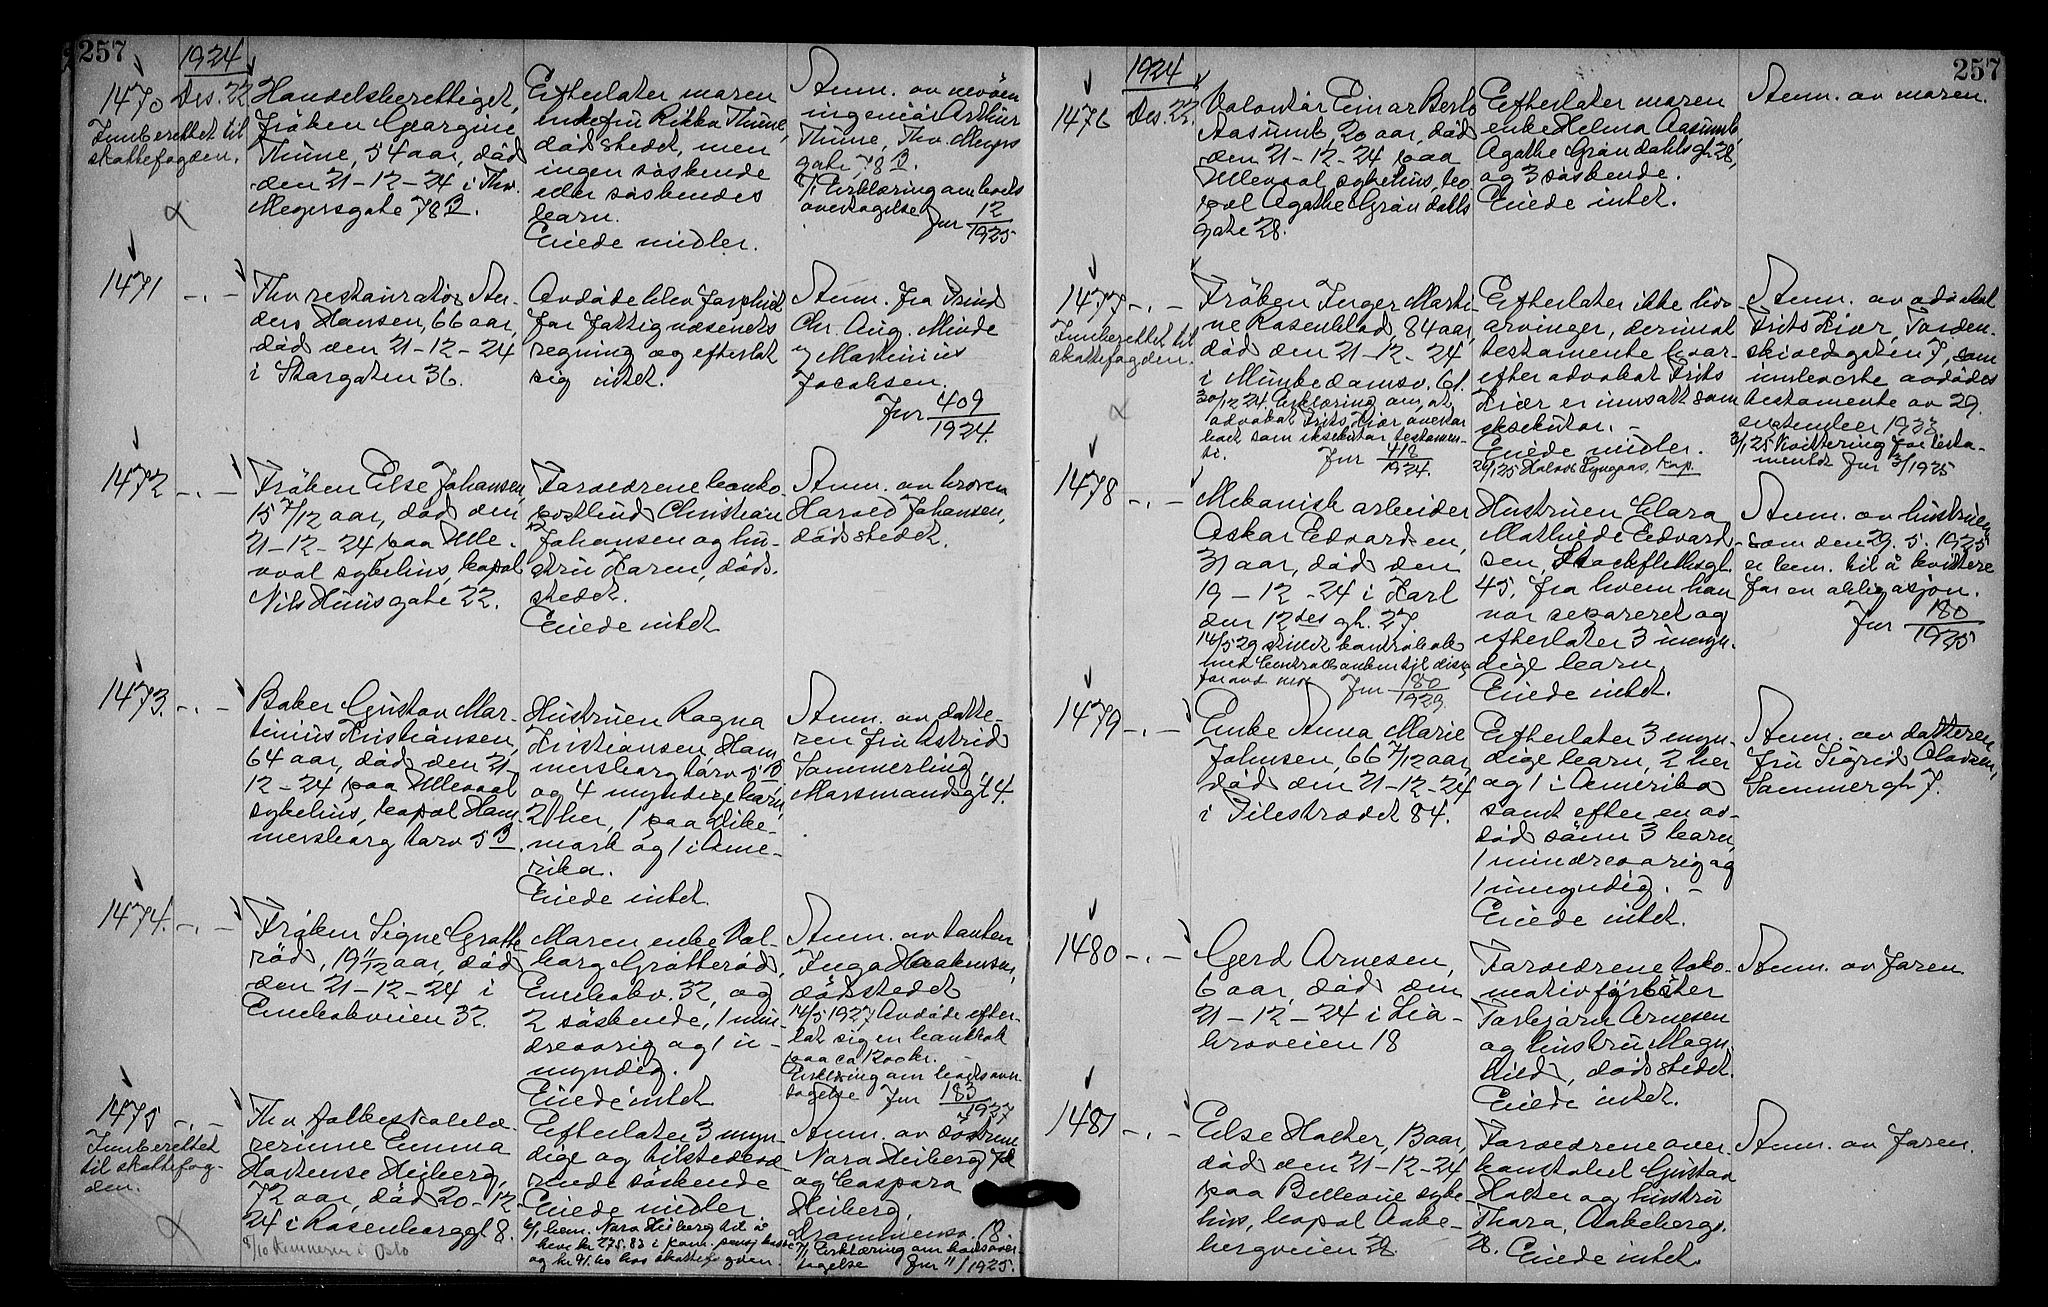 257
1924
1470
Des. 22
Innberettet til
skattefogden.
Handelsberettiget,
Frøken Georgine
Thune, 54 aar, død
den 21-12-24 i Thv.
Meyersgate 78 B.
Efterlater moren
enkefru Rikka Thune,
dødstedet, men
ingen søskende
eller søskendes
barn.
Eiede midler.
Anm. av nevøen
ingeniør Arthur
Thune, Thv. Meyers
gate 78 B.
8/1 Erklæring om boets
overtagelse
Jnr 12
1925
1471 -.-
Fhv restauratør An-
ders Hansen, 66 aar,
død den 21-12-24
i Storgaten 36.
Avdøde blev forpleiet
for fattigvæsenets
regning og efterlot
sig intet.
Anm. fra Prind
Chr. Aug. Minde
v Martinius
Jacobsen.
Jnr 409
1924.
1472 -.-
Frøken Else Johansen
15 7/12 aar, død den
21-12-24 paa Ulle-
vaal sykehus, bopæl
Nils Huusgate 22.
Forældrene banko-
postbud Christian
Johansen og hu-
stru Karen, død-
stedet.
Eiede intet
Anm. av broren
Harald Johansen,
dødstedet.
1473. -.-
Baker Gustav Mar-
tinius Kristiansen,
64 aar, død den 21-
12-24 paa Ullevaal
sykehus, bopæl Ham-
mersborg torv 5 B.
Hustruen Ragna
Kristiansen Ham-
mersborg torv 5 B
og 4 myndige barn,
2 her, 1 paa Dike-
mark og 1 i Ame-
rika.
Eiede intet.
Anm. av datte-
ren fru Astrid
Sommerling
Marsmandsgt 4.
1474. -.-
Frøken Signe Grøtte
rød, 19 1/12 aar, død
den 21-12-24 i
Enebakveien 32.
Moren enke Val-
borg Grøtterød,
Enebakv. 32, og
2 søskende, 1 min-
dreaarig og 1 u-
myndig.
Eiede intet
Anm. av tanten
Inga Haakensen,
dødstedet
14/5 1927 Avdøde efter-
lot sig en bankbok
paa ca 1200 kr. -
Erklæring om boets over-
tagelse Jnr 183
1927
1475 -.-
Innberettet
til skattefog-
den.
Fhv folkeskolelæ-
rerinne Emma
Hortense Heiberg,
72 aar, død 20-12-
24 i Rosenborggt 8.
8/10 Kemneren i Oslo
Efterlater 3 myn-
dige og tilstedevæ-
rende søskende
Eiede midler
6/1 bem. Nora Heiberg til å
heve kr 275.83 i kom. pensj kasse
og kr 41.60 hos skattefogden.
Anm. av søstrene
Nora Heiberg
og Caspara
Heiberg,
Drammensv. 18.
7/1 Erklæring om boets over-
tagelse Jnr 11/1925.
257
1924
1476
Des. 22.
Volontør Einar Berlo
Aasumb, 20 aar, død
den 21-12-24 paa
Ullevaal sykehus, bo
pæl Agathe Grøndahls
gate 28.
Efterlater moren
enke Helma Aasumb,
Agathe Grøndahls gt 28,
og 3 søskende.
Eiede intet.
Anm. av moren.
1477 -.-
Innberettet til
skattefogden.
Frøken Inger Marti-
ne Rosenblad, 84 aar,
død den 21-12-24
i Munkedamsv. 61.
30/12 24 Erklæring om, at
advokat Frits Kiær overtar
boet som eksekutor testamen-
ti.
Jnr 418
1924.
Efterlater ikke livs-
arvinger, derimot
testamente hvor-
efter advokat Frits
Kiær er innsatt som
eksekutor. -
Eiede midler.
Anm. av advokat
Frits Kiær, Torden-
skioldsgaten 7, som
innleverte avdødes
testamente av 29.
september 1923
3/1 25 Kvittering for testa-
mentet Jnr 3/1925
1478 -.-
Mekanisk arbeider
Oskar Edvardsen,
31 aar, død den
19-12-24 i Karl
den 12tes gt. 27
14/5 29 skiftet kontrabok
Jnr 180
1929
Hustruen Clara
Mathilde Edvard-
sen, Stockflethsgt.
45, fra hvem han
var separeret og
efterlater 3 umyn-
dige barn.
Eiede intet.
Anm. av hustruen
som den 29.5.1925
er bem. til å kvittere
for en obligasjon.
Jnr 180
1925
1479 -.-
Enke Anna Marie
Johnsen, 66 7/12 aar,
død den 21-12-24
i Pilestrædet 84.
Efterlater 3 myn-
dige barn, 2 her
og 1 i Amerika
samt efter en av-
død sønn 3 barn,
1 mindreaarig og
1 umyndig. -
Eiede intet.
Anm. av datteren
fru Sigrid Olavsen,
Sommergt 7.
1480 -.-
Gerd Arnesen,
6 aar, død den
21-12-24 i Lia-
broveien 18
Forældrene loko-
motivfyrbøter
Torbjørn Arnesen
og hustru Magn-
hild, dødstedet.
Eiede intet.
Anm. av faren
1481 -.-
Else Holter, 13 aar,
død den 21-12-24
paa Bellevue syke-
hus, bopæl Aake-
bergveien 28.
Forældrene over-
konstabel Gustav
Holter og hustru
Thora, Aakebergv.
28. Eiede intet.
Anm. av faren.